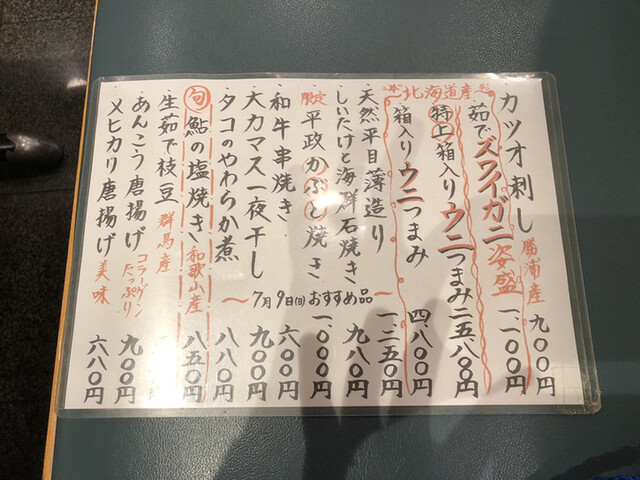 カツオ刺し 勝浦産 九〇〇円
北海道産
茹でズワイガニ姿盛 一、一〇〇円
特上箱入りウニつまみ
箱入りウニつまみ 四、八〇〇円
天然平目薄造り 一、二五〇円
しいたけと海鮮石焼き 九八〇円
限定 平政かぶと焼き 一、〇〇〇円
和牛串焼き 六〇〇円
大カマス一夜干し 九〇〇円
タコのやわらか煮 八八〇円
旬 鮎の塩焼き 和歌山産 八五〇円
生茹で枝豆 群馬産 円
あんこう唐揚げ コラーゲンたっぷり 九〇〇円
メヒカリ唐揚げ 美味 六八〇円
〜7月9日(日)おすすめ品〜